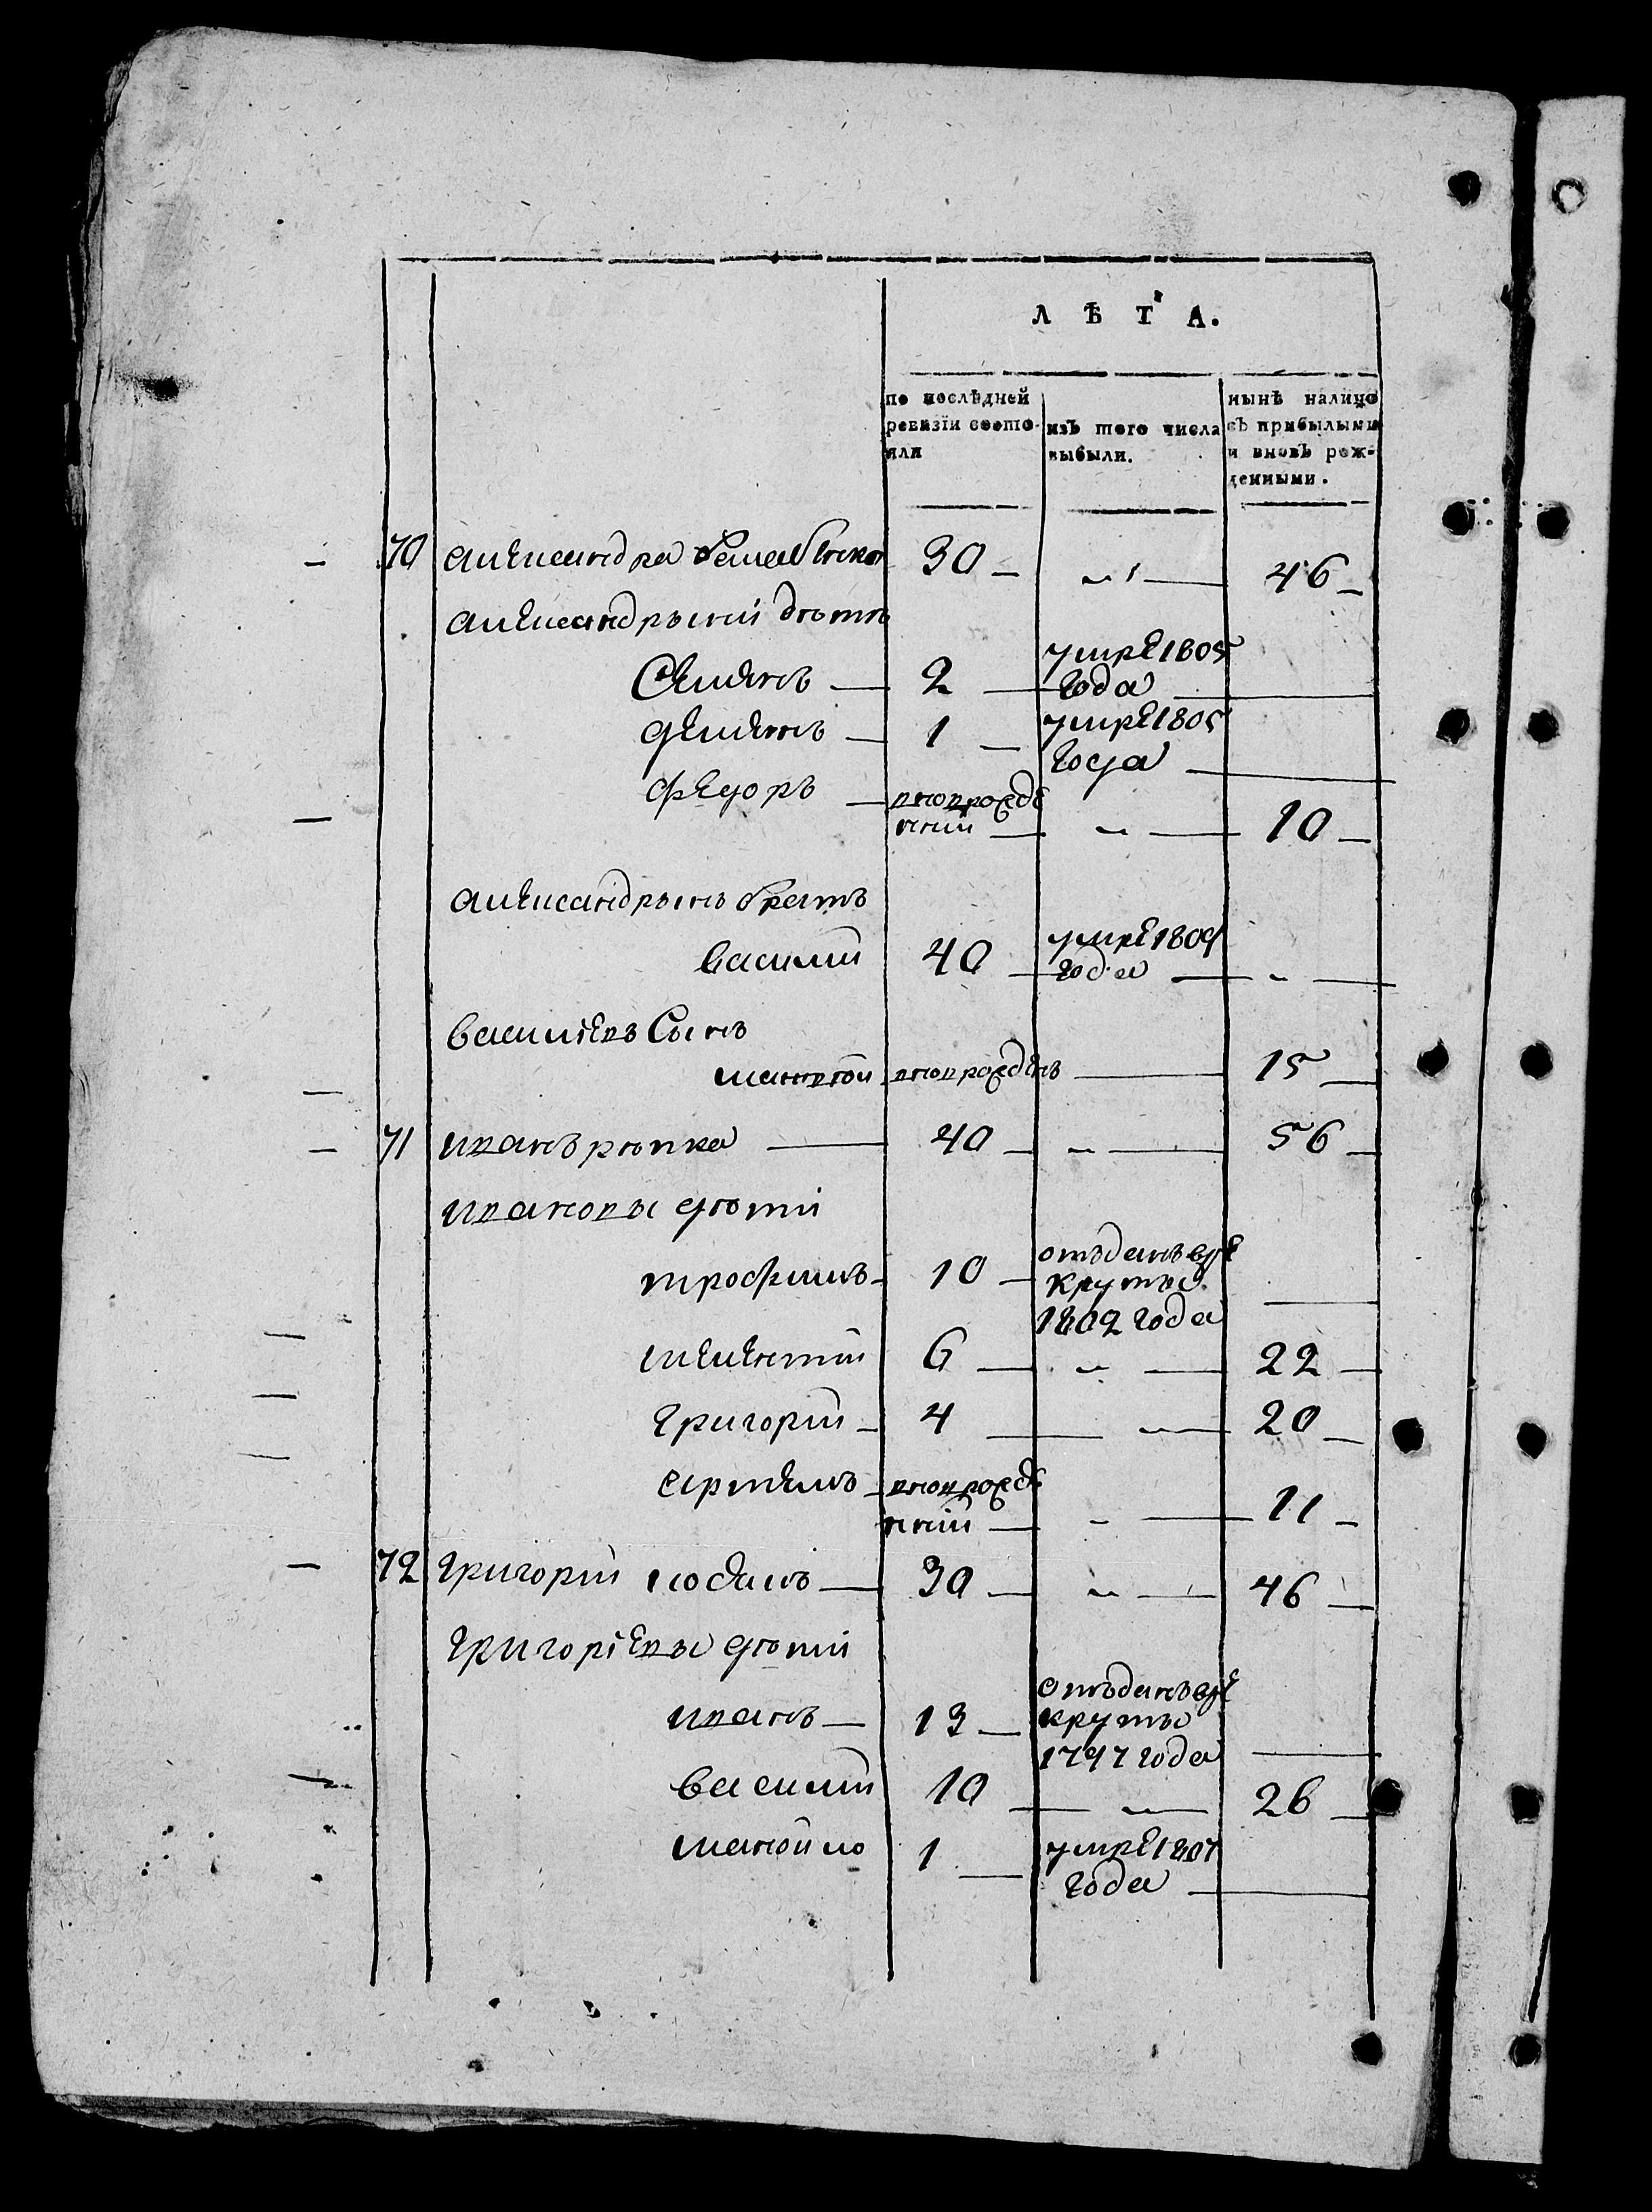 ЛѢТА.
по послѣдней ревизіи состояли
изъ того числа выбыли.
нынѣ налицо съ прибылыми и вновь рожденными.
70 александра 30 — 46
александрыни дѣти
Семенъ — 2 — умре 1805
года
деменъ — 1 — умре 1805
года
федоръ — новорожде
нний — 10
александрынъ братъ
василий 40 — умре 1809
года
василіевъ Сынъ
мануйи новорожденъ — 15
71 иванъ рѣпка — 40 — 56
ивановы дѣти
трофимъ 10 — отъданъ вре
круты
1802 года
мелентий 6 — 22
григорий — 4 — 20
артемъ — новорожде
нний — 11
72 григорий — 30 — 46
григоріевы дѣти
иванъ — 13 — отъданъ вре
круты
1797 года
василий 10 — 26
манойло 1 — умре 1807
года